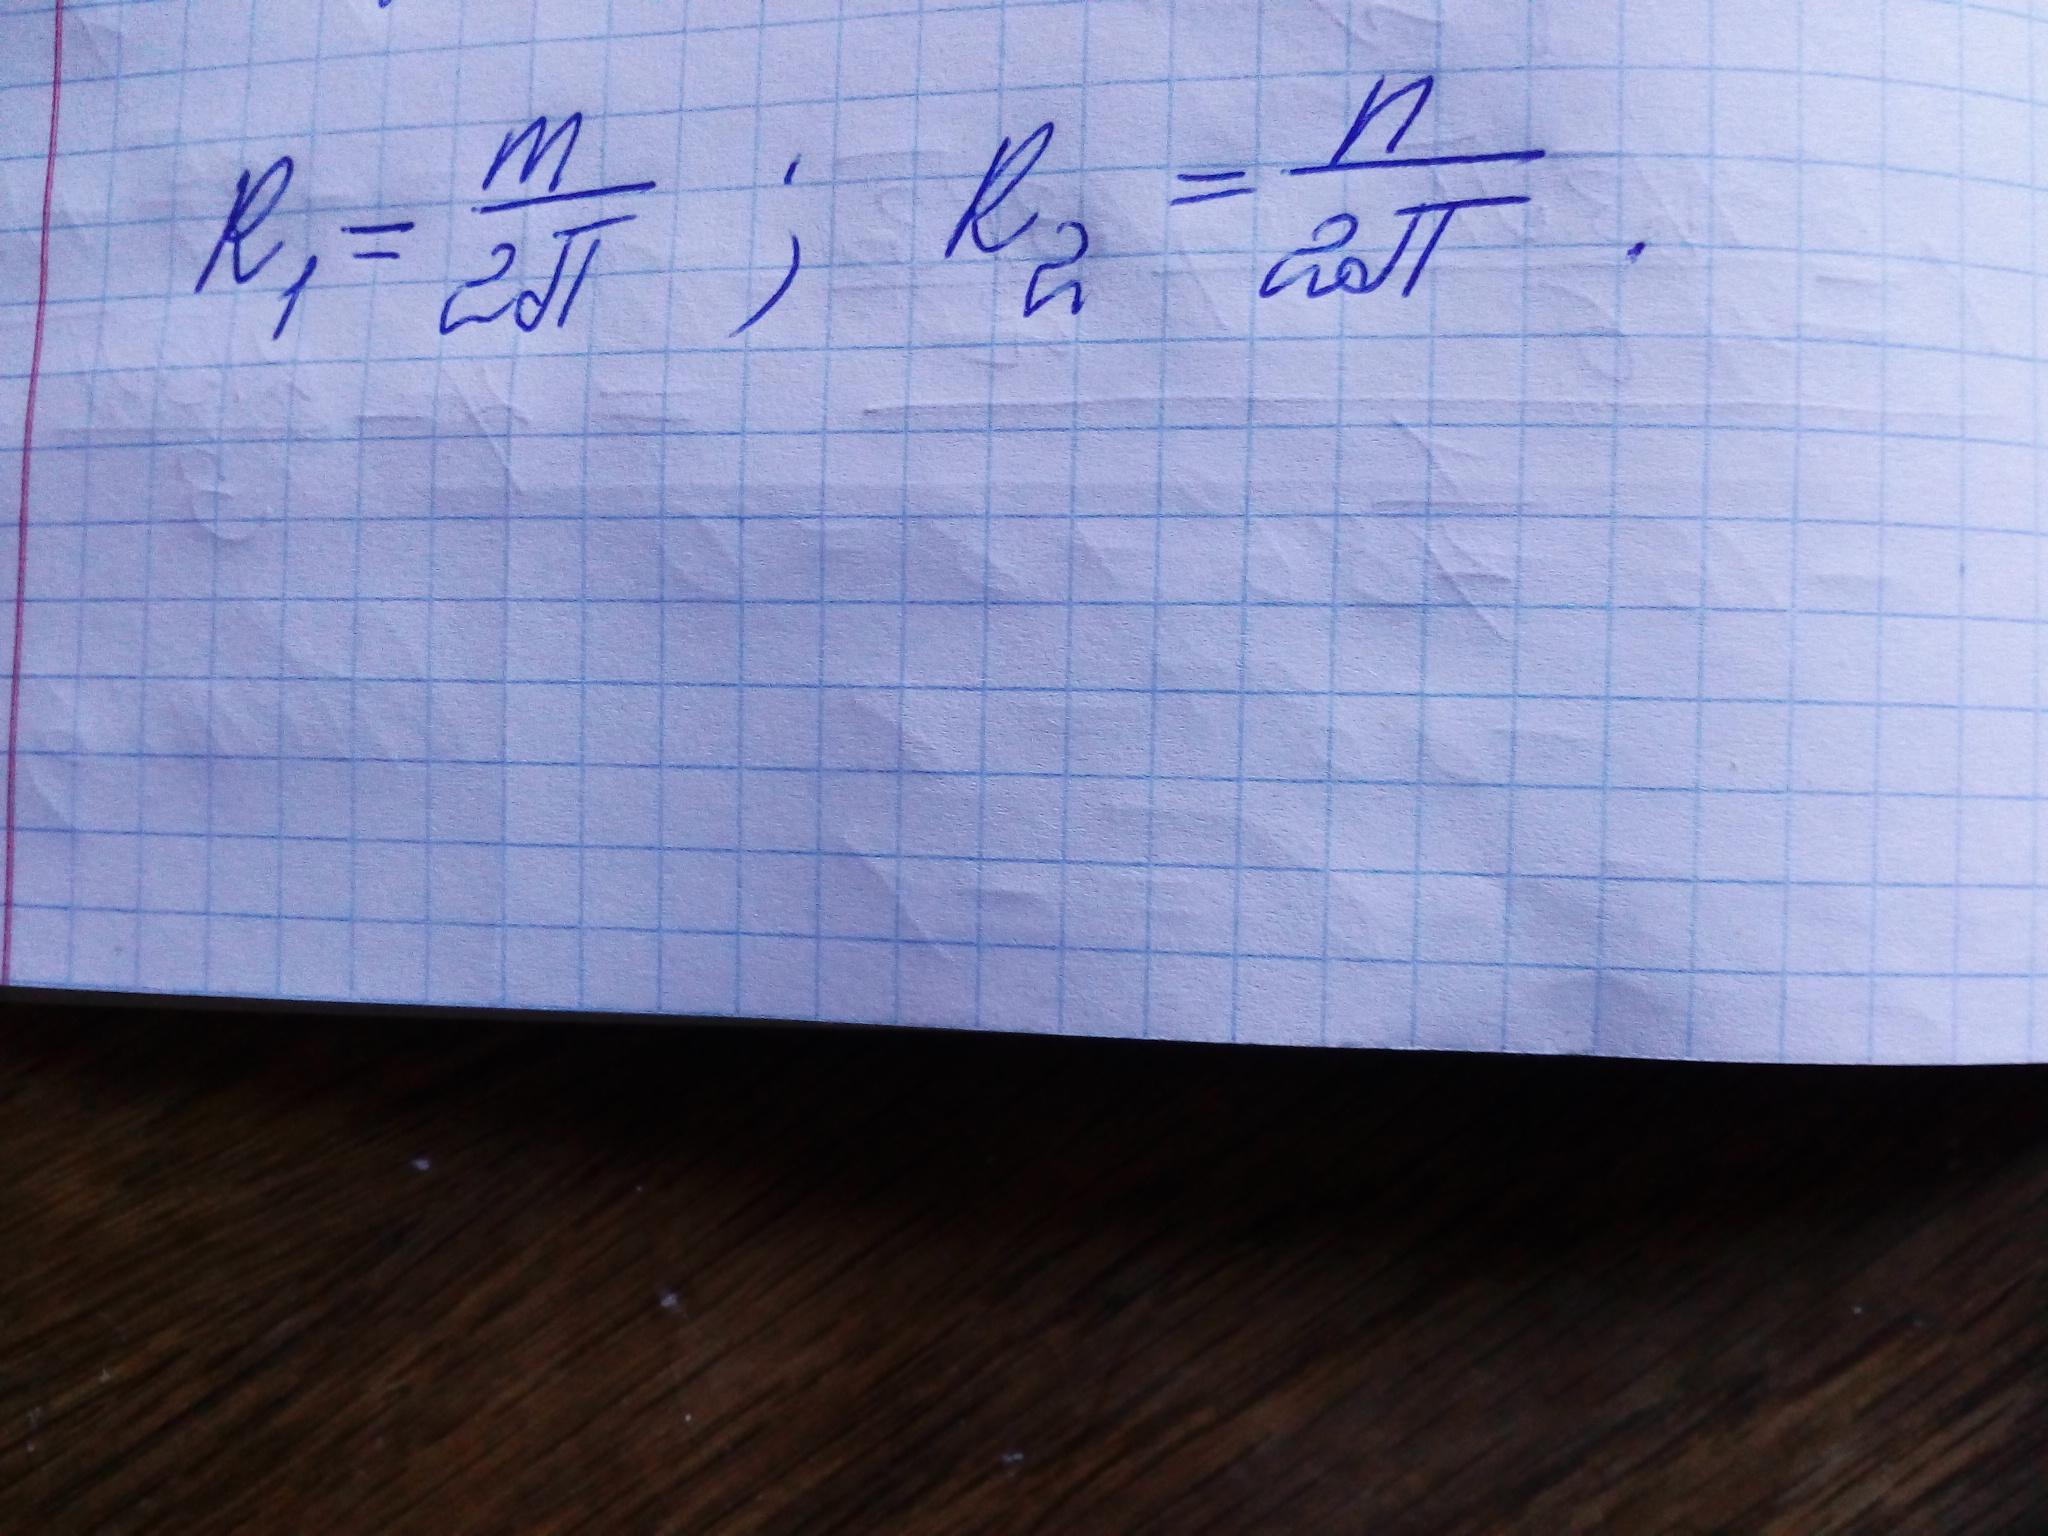 R₁ = m/2π ; R₂ = n/2π .